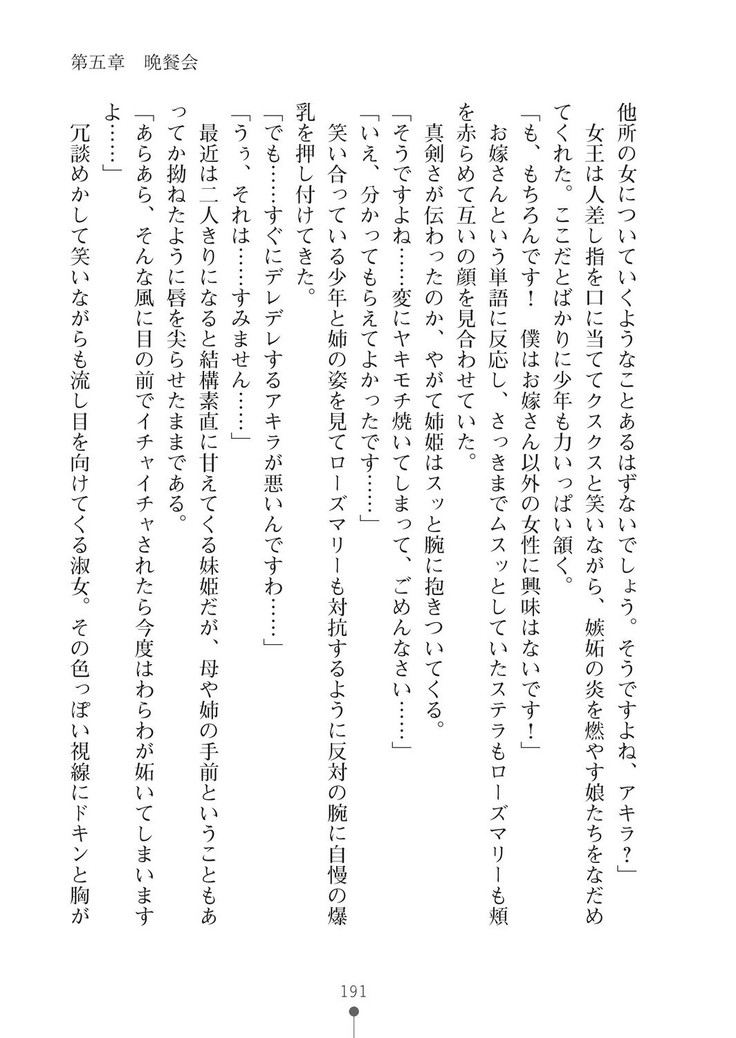 第五章　晩餐会
他所の女についていくようなことあるはずないでしょう。そうですよね、アキラ？」
　女王は人差し指を口に当ててクスクスと笑いながら、嫉妬の炎を燃やす娘たちをなだめ
てくれた。ここだとばかりに少年も力いっぱい頷く。
「も、もちろんです！　僕はお嫁さん以外の女性に興味はないです！」
　お嫁さんという単語に反応し、さっきまでムスッとしていたステラもローズマリーも頬
を赤らめて互いの顔を見合わせていた。
　真剣さが伝わったのか、やがて姉姫はスッと腕に抱きついてくる。
「そうですよね……変にヤキモチ焼いてしまって、ごめんなさい……」
「いえ、分かってもらえてよかったです……」
　笑い合っている少年と姉の姿を見てローズマリーも対抗するように反対の腕に自慢の爆
乳を押し付けてきた。
「でも……すぐにデレデレするアキラが悪いんですわ……」
「うぅ、それは……すみません……」
　最近は二人きりになると結構素直に甘えてくる妹姫だが、母や姉の手前ということもあ
ってか拗ねたように唇を尖らせたままである。
「あらあら、そんな風に目の前でイチャイチャされたら今度はわらわが妬いてしまいます
よ……」
　冗談めかして笑いながらも流し目を向けてくる淑女。その色っぽい視線にドキンと胸が
191